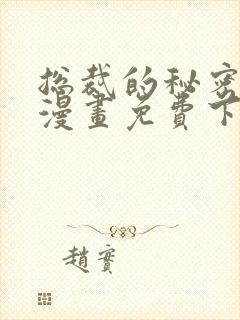 总裁的秘密
漫畫免費下
趙寳